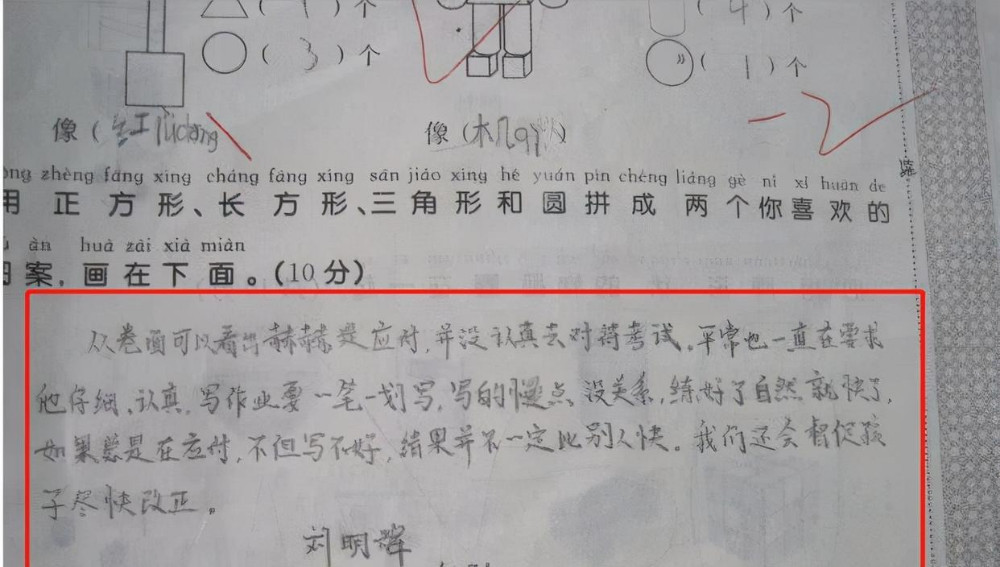 ( 1 ) 个 ( 4 ) 个
( 3 ) 个 ( 1 ) 个
像 ( 红lǜdēng 像 (木几 )
-2
zhèng fāng xíng cháng fāng xíng sān jiǎo xíng hé yuán pīn chéng liǎng gè nǐ xǐ huān de
用 正 方 形、长 方 形、三 角 形 和 圆 拼 成 两 个 你 喜 欢 的
àn huà zài xià miàn
图 案，画 在 下 面 。(10 分)
从卷面可以看出赫赫是应付，并没认真去对待考试。平常也一直在要求
他仔细、认真，写作业要一笔一划写，写的慢点没关系，练好了自然就快了，
如果总是在应付，不但写不好，结果并不一定比别人快。我们还会督促孩
子尽快改正。
刘明辉